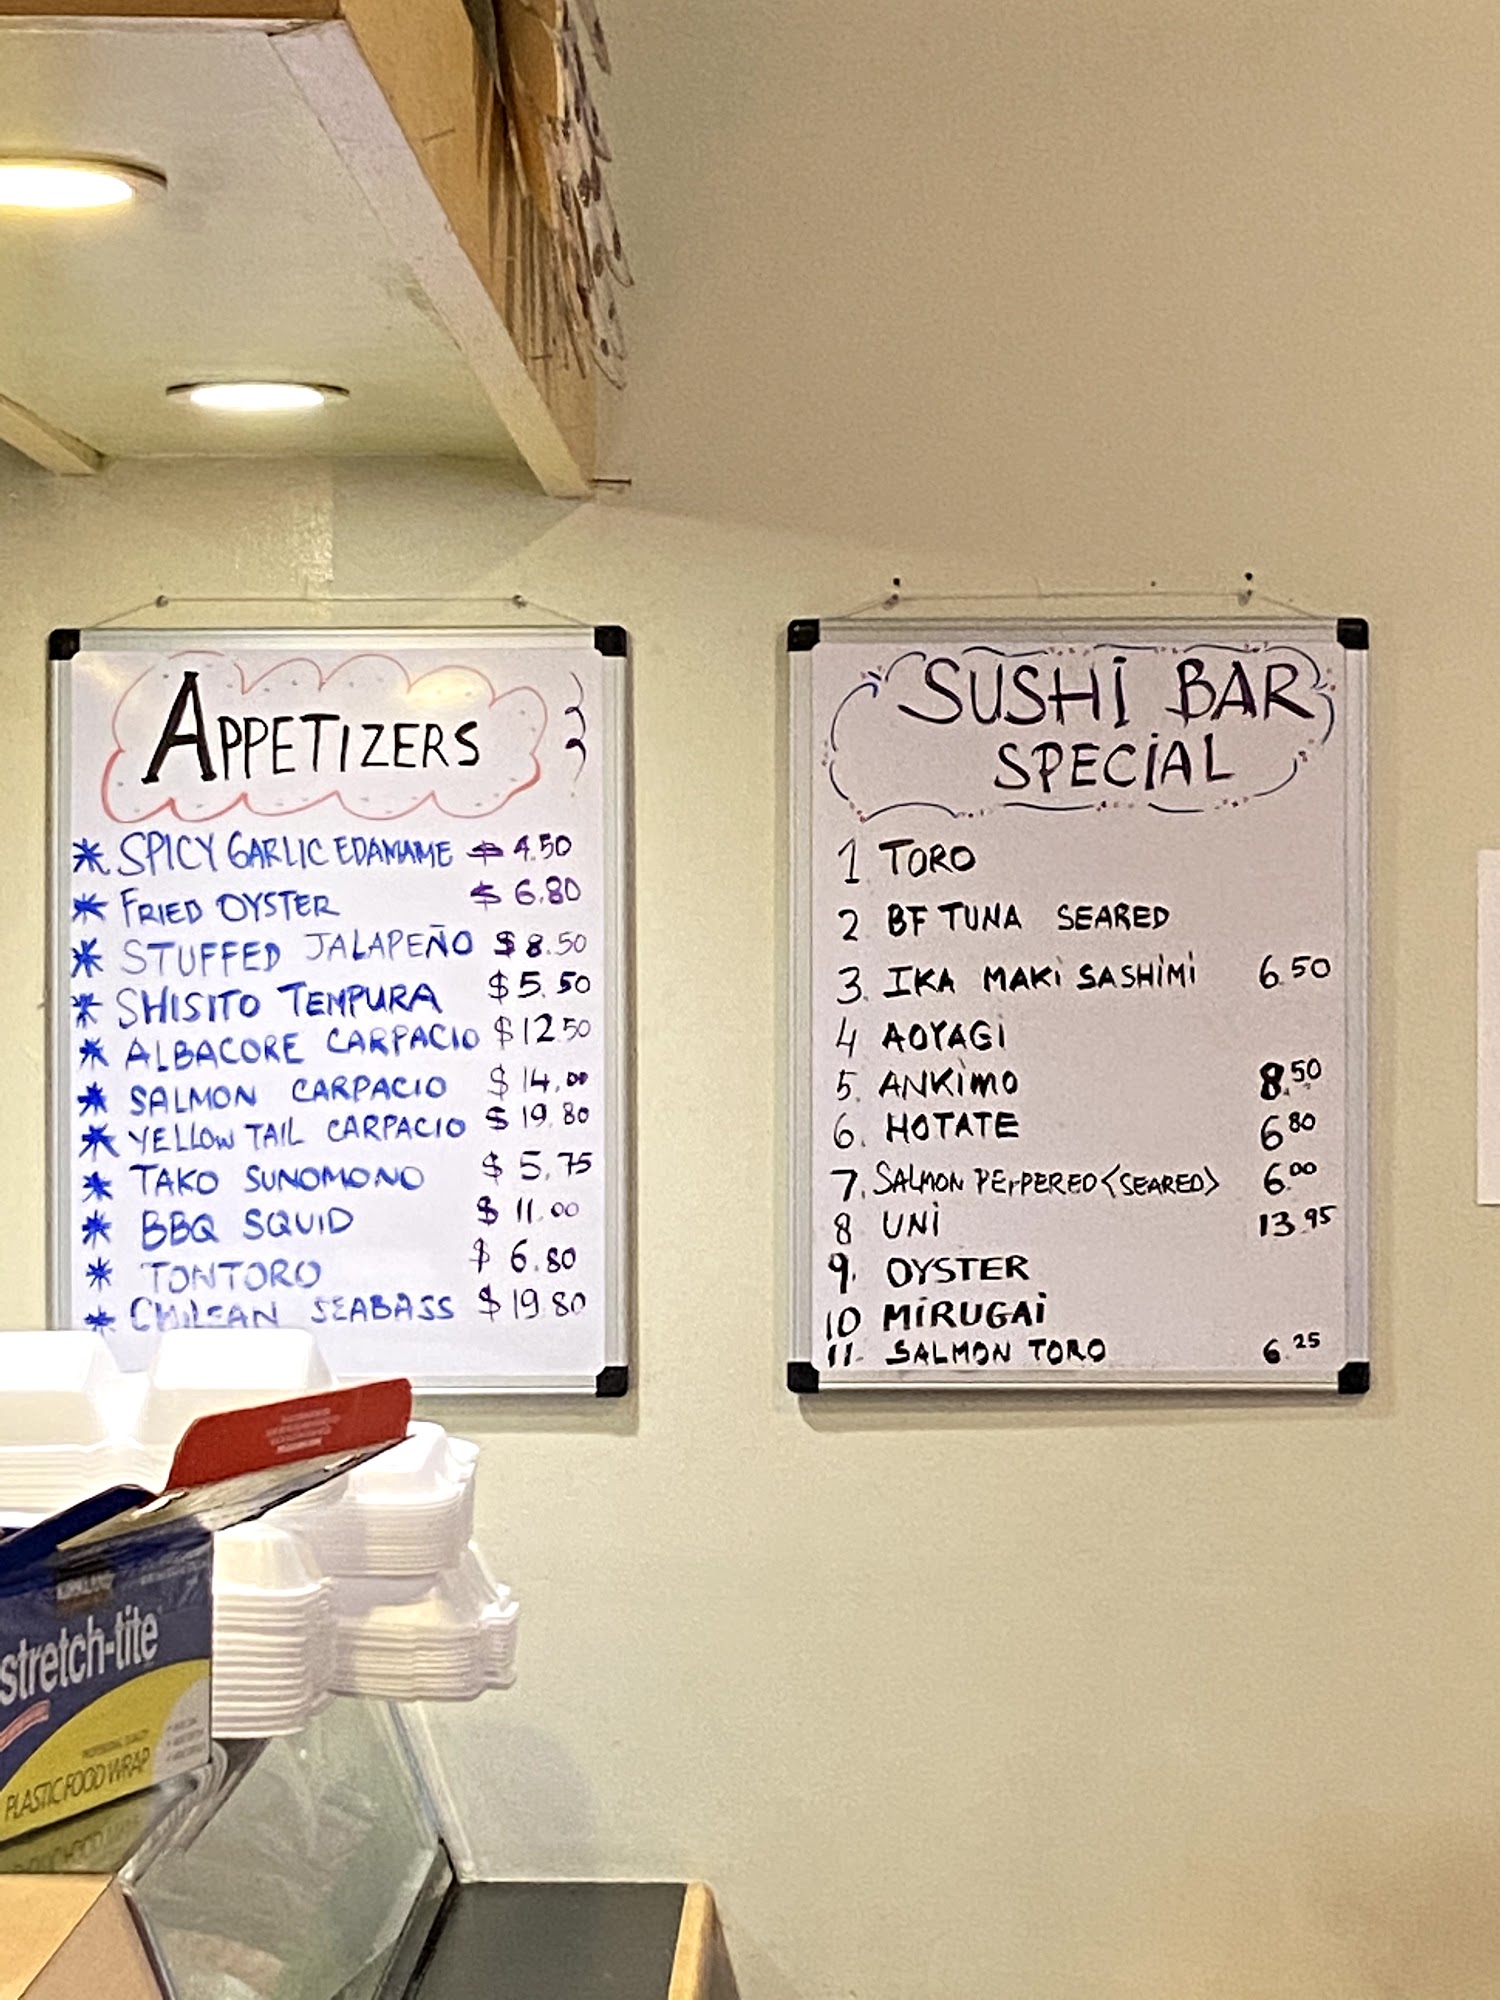 APPETIZERS
SPICY GARLIC EDAMAME $ 4.50
FRIED OYSTER $ 6.80
STUFFED JALAPEÑO $ 8.50
SHISITO TEMPURA $ 5.50
ALBACORE CARPACIO $ 12.50
SALMON CARPACIO $ 14.00
YELLOW TAIL CARPACIO $ 19.80
TAKO SUNOMONO $ 5.75
BBQ SQUID $ 11.00
TONTORO $ 6.80
CHILEAN SEABASS $ 19.80
SUSHI BAR
SPECIAL
1 TORO
2 BF TUNA SEARED
3. IKA MAKI SASHIMI 6.50
4 AOYAGI
5. ANKIMO 8.50
6. HOTATE 6.80
7. SALMON PEPPERED <SEARED> 6.00
8 UNI 13.95
9. OYSTER
10 MIRUGAI
11. SALMON TORO 6.25
KIRKLAND
stretch-tite
PROFESSIONAL QUALITY
PLASTIC FOOD WRAP